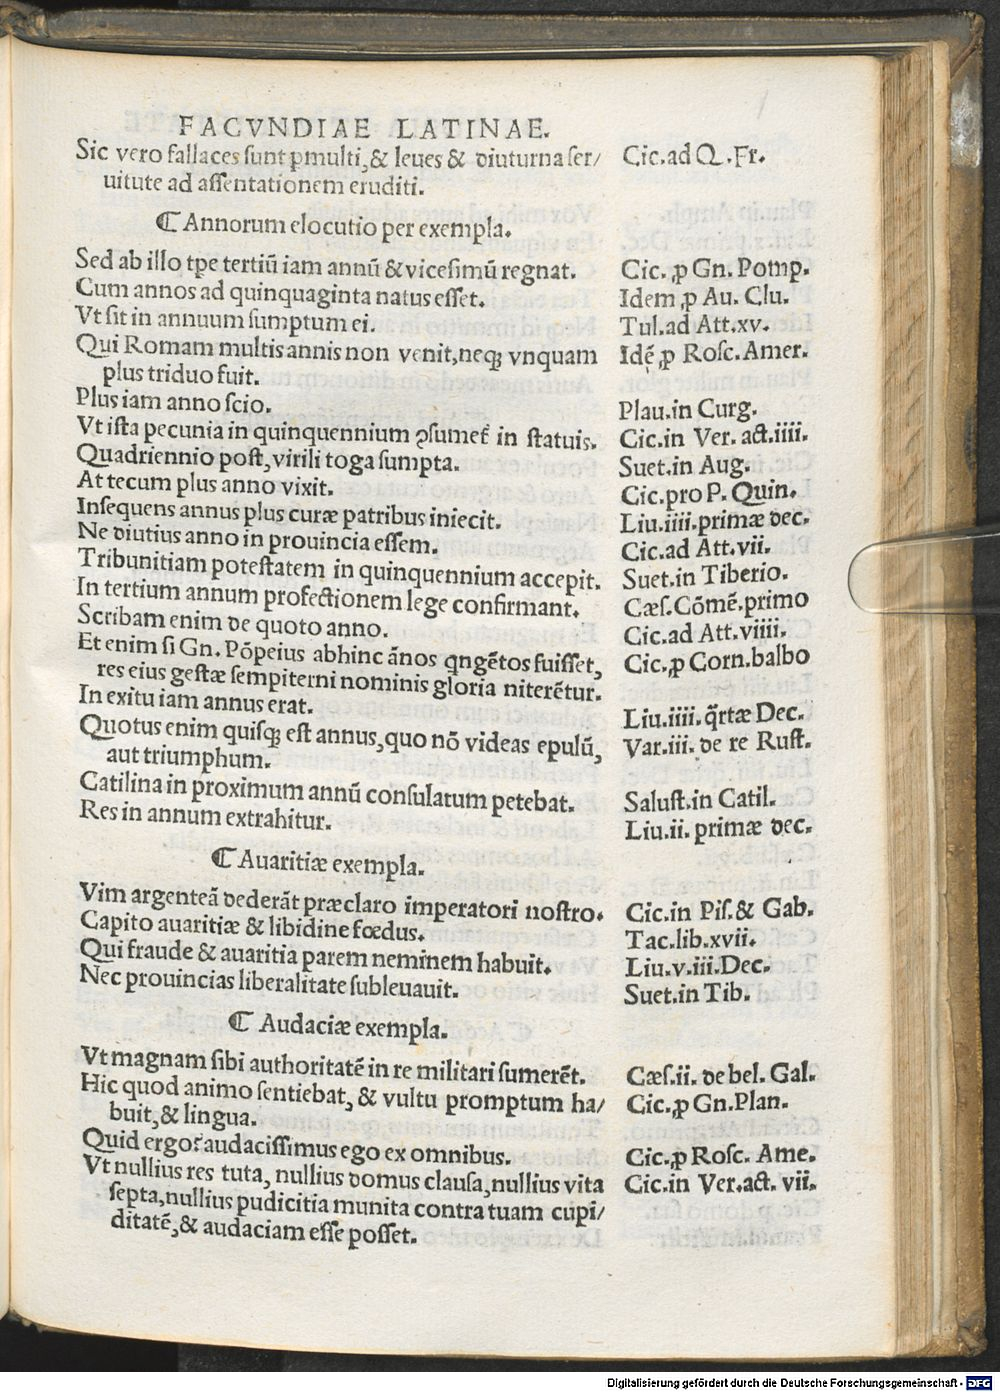 FACVNDIAE LATINAE.
Sic vero fallaces sunt ꝑmulti, & leues & diuturna ser/ Cic. ad Q. Fr.
uitute ad assentationem eruditi.
⸿ Annorum elocutio per exempla.
Sed ab illo tꝑe tertiū iam annū & vicesimū regnat. Cic. ꝓ Gn. Pomp.
Cum annos ad quinquaginta natus esset. Idem ꝓ Au. Clu.
Vt sit in annuum sumptum ei. Tul. ad Att. xv.
Qui Romam multis annis non venit, neqꝫ vnquam Idē ꝓ Rosc. Amer.
plus triduo fuit.
Plus iam anno scio. Plau. in Curg.
Vt ista pecunia in quinquennium ꝯsumeť in statuis. Cic. in Ver. act. iiii.
Quadriennio post, virili toga sumpta. Suet. in Aug.
At tecum plus anno vixit. Cic. pro P. Quin.
Insequens annus plus curæ patribus iniecit. Liu. iiii. primæ dec.
Ne diutius anno in prouincia essem. Cic. ad Att. vii.
Tribunitiam potestatem in quinquennium accepit. Suet. in Tiberio.
In tertium annum profectionem lege confirmant. Cæs. Cōmē. primo
Scribam enim de quoto anno. Cic. ad Att. viiii.
Et enim si Gn. Pōpeius abhinc ānos qngētos fuisset, Cic. ꝓ Corn. balbo
res eius gestæ sempiterni nominis gloria niterētur.
In exitu iam annus erat. Liu. iiii. q̄rtæ Dec.
Quotus enim quisqꝫ est annus, quo nō videas epulū, Var. iii. de re Rust.
aut triumphum.
Catilina in proximum annū consulatum petebat. Salust. in Catil.
Res in annum extrahitur. Liu. ii. primæ dec.
⸿ Auaritiæ exempla.
Vim argenteā dederāt præclaro imperatori nostro. Cic. in Pis. & Gab.
Capito auaritiæ & libidine fœdus. Tac. lib. xvii.
Qui fraude & auaritia parem neminem habuit. Liu. v. iii. Dec.
Nec prouincias liberalitate subleuauit. Suet. in Tib.
⸿ Audaciæ exempla.
Vt magnam sibi authoritatē in re militari sumerēt. Cæs. ii. de bel. Gal.
Hic quod animo sentiebat, & vultu promptum ha/ Cic. ꝓ Gn. Plan.
buit, & lingua.
Quid ergo? audacissimus ego ex omnibus. Cic. ꝓ Rosc. Ame.
Vt nullius res tuta, nullius domus clausa, nullius vita Cic. in Ver. act. vii.
septa, nullius pudicitia munita contra tuam cupi/
ditatē, & audaciam esse posset.
Digitalisierung gefördert durch die Deutsche Forschungsgemeinschaft - DFG